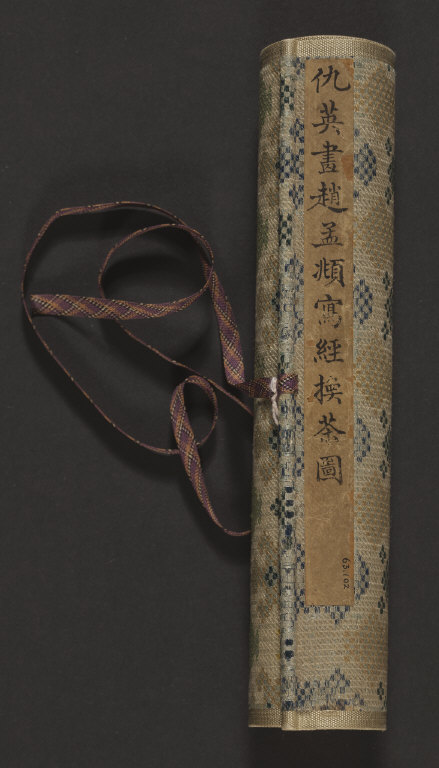 仇英畫趙孟頫寫經換茶圖
63102